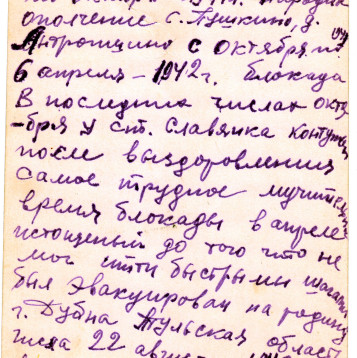 ополчение с. Пушкино, д.
Антропшино с октября
6 апреля – 1942г. блокада
В последних числах октя
-бря у ст. Славянка контужен
после выздоровления
самое трудное мучительн
время блокады в апреле
истощеный до того что не
мог итти быстрыми шагами
был эвакуирован на родину
г. Дубна Тульская област
22